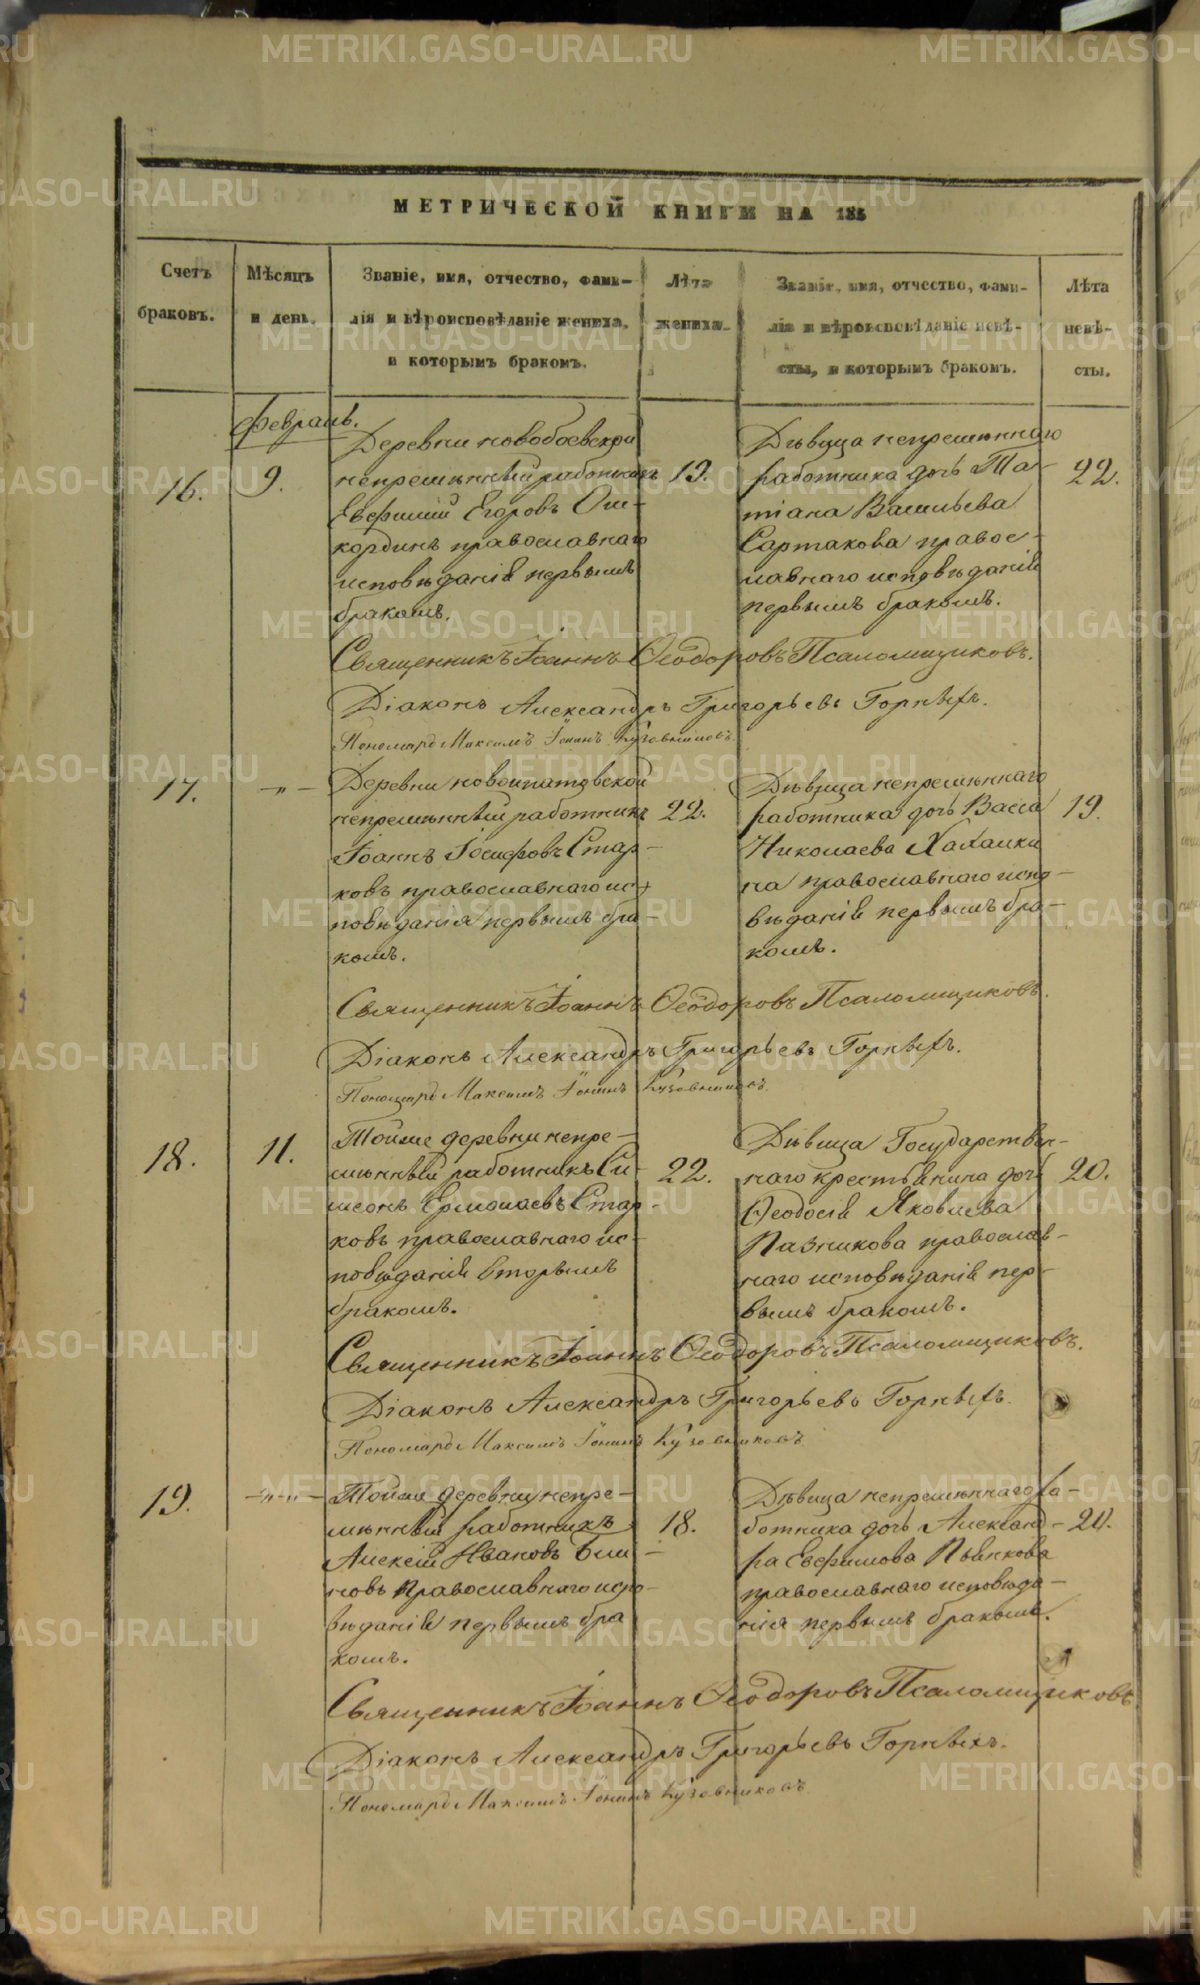 МЕТРИЧЕСКОЙ КНИГИ НА 185
Счетъ браковъ.
Мѣсяцъ и день.
Званіе, имя, отчество, фами-
лія и вѣроисповѣданіе жениха,
и которымъ бракомъ.
Лѣта жениха.
Званіе, имя, отчество, фами-
лія и вѣроисповѣданіе невѣ-
сты, и которымъ бракомъ.
Лѣта невѣ-
сты.
Февраль.
16.
9.
Деревни новобоевской
непремѣнный работникъ
Евфимій Егоровъ
православнаго
исповѣданія первымъ
бракомъ.
19.
Дѣвица непремѣннаго
работника дочь Та-
тіана Васильева
Сартакова правос-
лавнаго исповѣданія
первымъ бракомъ.
22.
Священникъ Іоаннъ Ѳеодоровъ Псаломщиковъ.
Діаконъ Александръ Григорьевъ Горныхъ.
Пономарь Максимъ Іонинъ Кузовниковъ
17.
-„-
Деревни новоипатовской
непремѣнный работникъ
Іоаннъ Іосифовъ Стар-
ковъ православнаго ис-
повѣданія первымъ бра-
комъ.
22.
Дѣвица непремѣннаго
работника дочь Васса
Николаева Халамки
на православнаго испо-
вѣданія первымъ бра-
комъ.
19.
Священникъ Іоаннъ Ѳеодоровъ Псаломщиковъ.
Діаконъ Александръ Григорьевъ Горныхъ.
Пономарь Максимъ Іонинъ Кузовниковъ
18.
11.
Тойже деревни непре-
мѣнный работникъ Си-
меонъ Ермолаевъ Стар-
ковъ православнаго ис-
повѣданія вторымъ
бракомъ.
22.
Дѣвица Государствен-
наго крестьянина дочь
Ѳеодосія Яковлева
Пазникова православ-
наго исповѣданія пер-
вымъ бракомъ.
20.
Священникъ Іоаннъ Ѳеодоровъ Псаломщиковъ.
Діаконъ Александръ Григорьевъ Горныхъ.
Пономарь Максимъ Іонинъ Кузовниковъ
19.
-„-„-
Тойже деревни непре-
мѣнный работникъ
Алексій Ивановъ Бли-
новъ православнаго испо-
вѣданія первымъ бра
комъ.
18.
Дѣвица непремѣннаго ра-
ботника дочь Александ-
ра Евфимова Пьянкова
православнаго исповѣда-
нія первымъ бракомъ.
Священникъ Іоаннъ Ѳеодоровъ Псаломщиковъ
Діаконъ Александръ Григорьевъ Горныхъ.
Пономарь Максимъ Іонинъ Кузовниковъ
METRIKI.GASO-URAL.RU